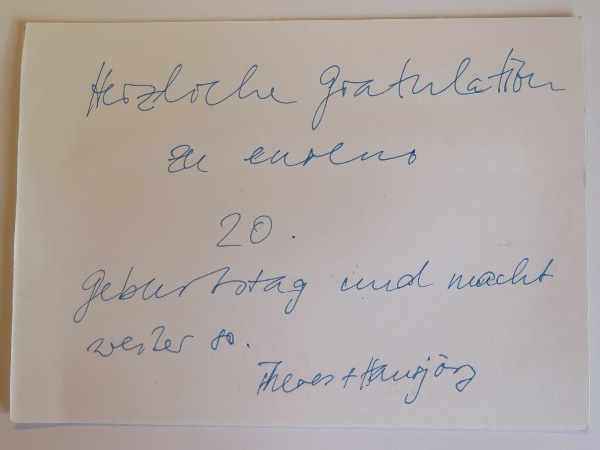 Herzliche Gratulation
zu eurem
20.
Geburtstag und macht
weiter so.
Theres + Hansjörg